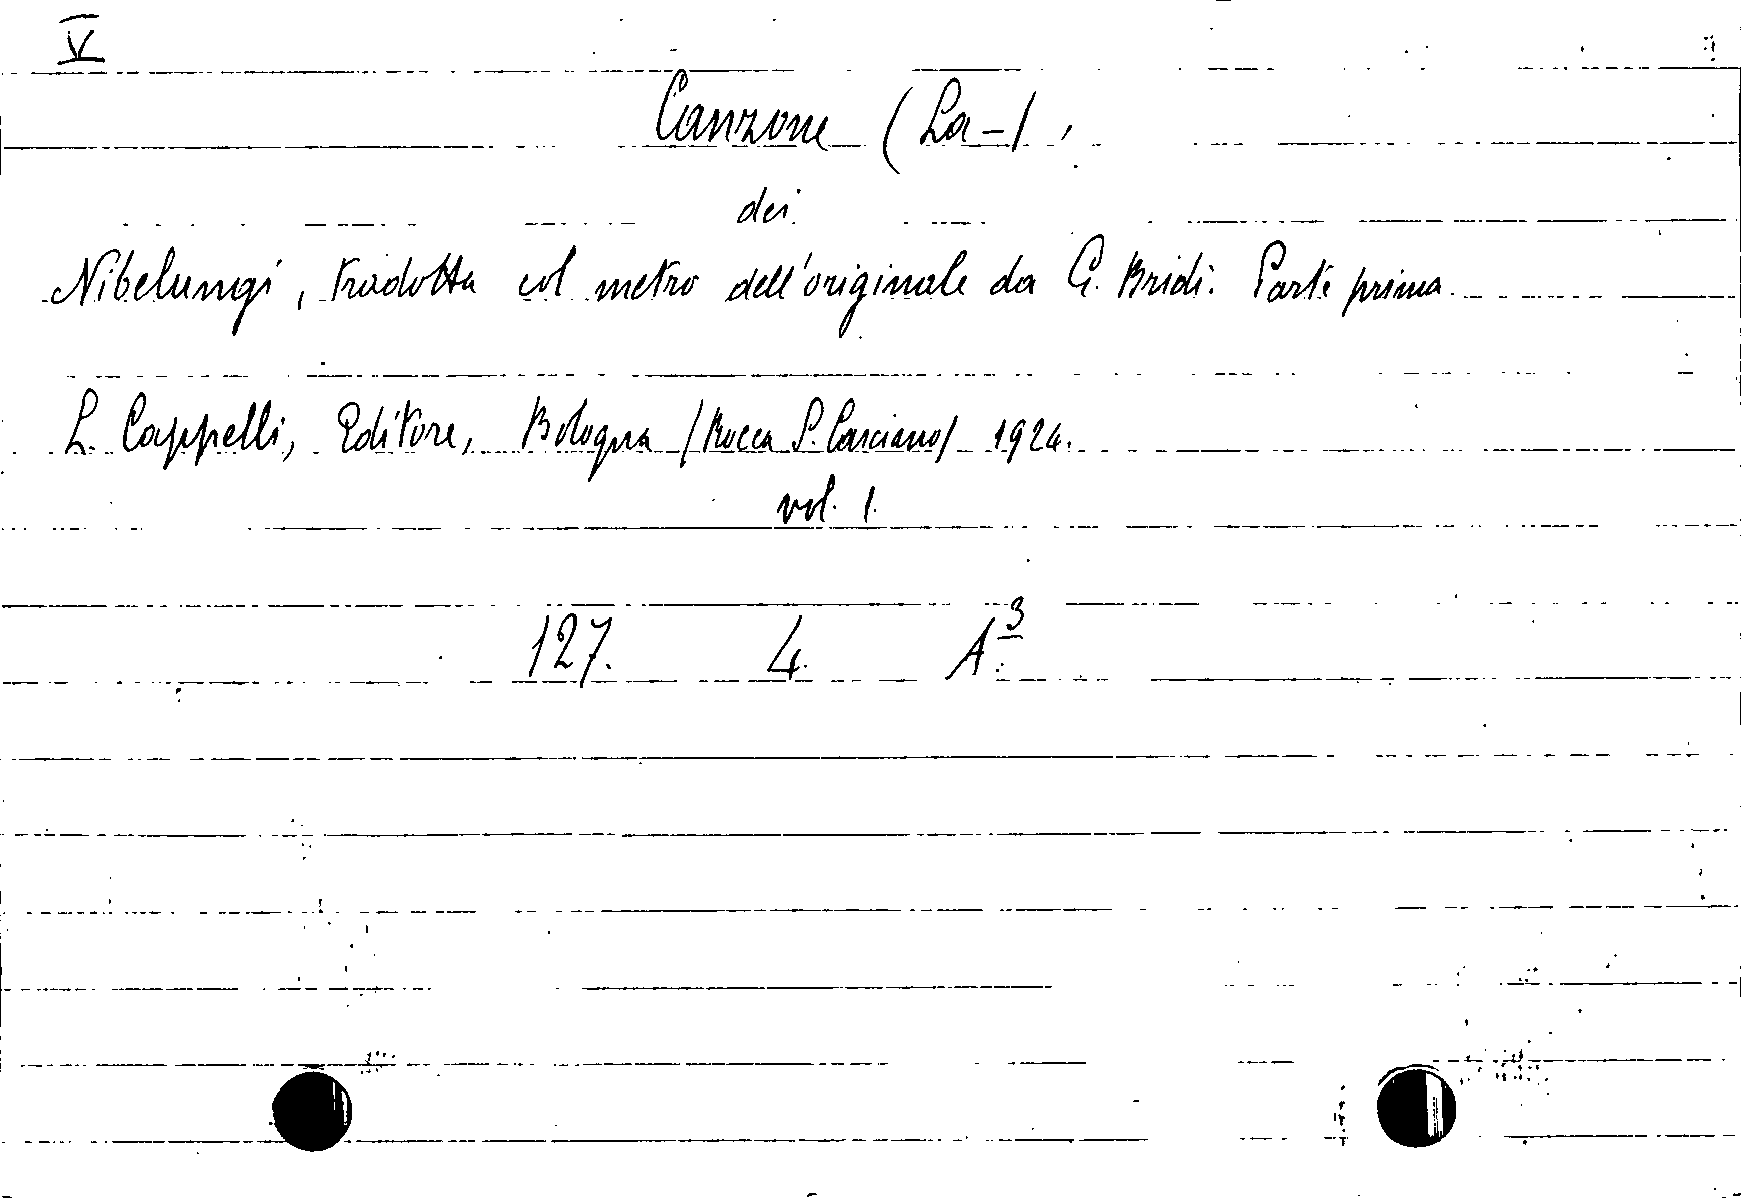 V
Canzone (La-),
dei
Nibelungi, tradotta col metro dell'originale da G. Bridi. Parte prima
L. Cappelli, Editore, Bologna (Rocca S. Casciano) 1924.
vol. 1.
127. 4. A3